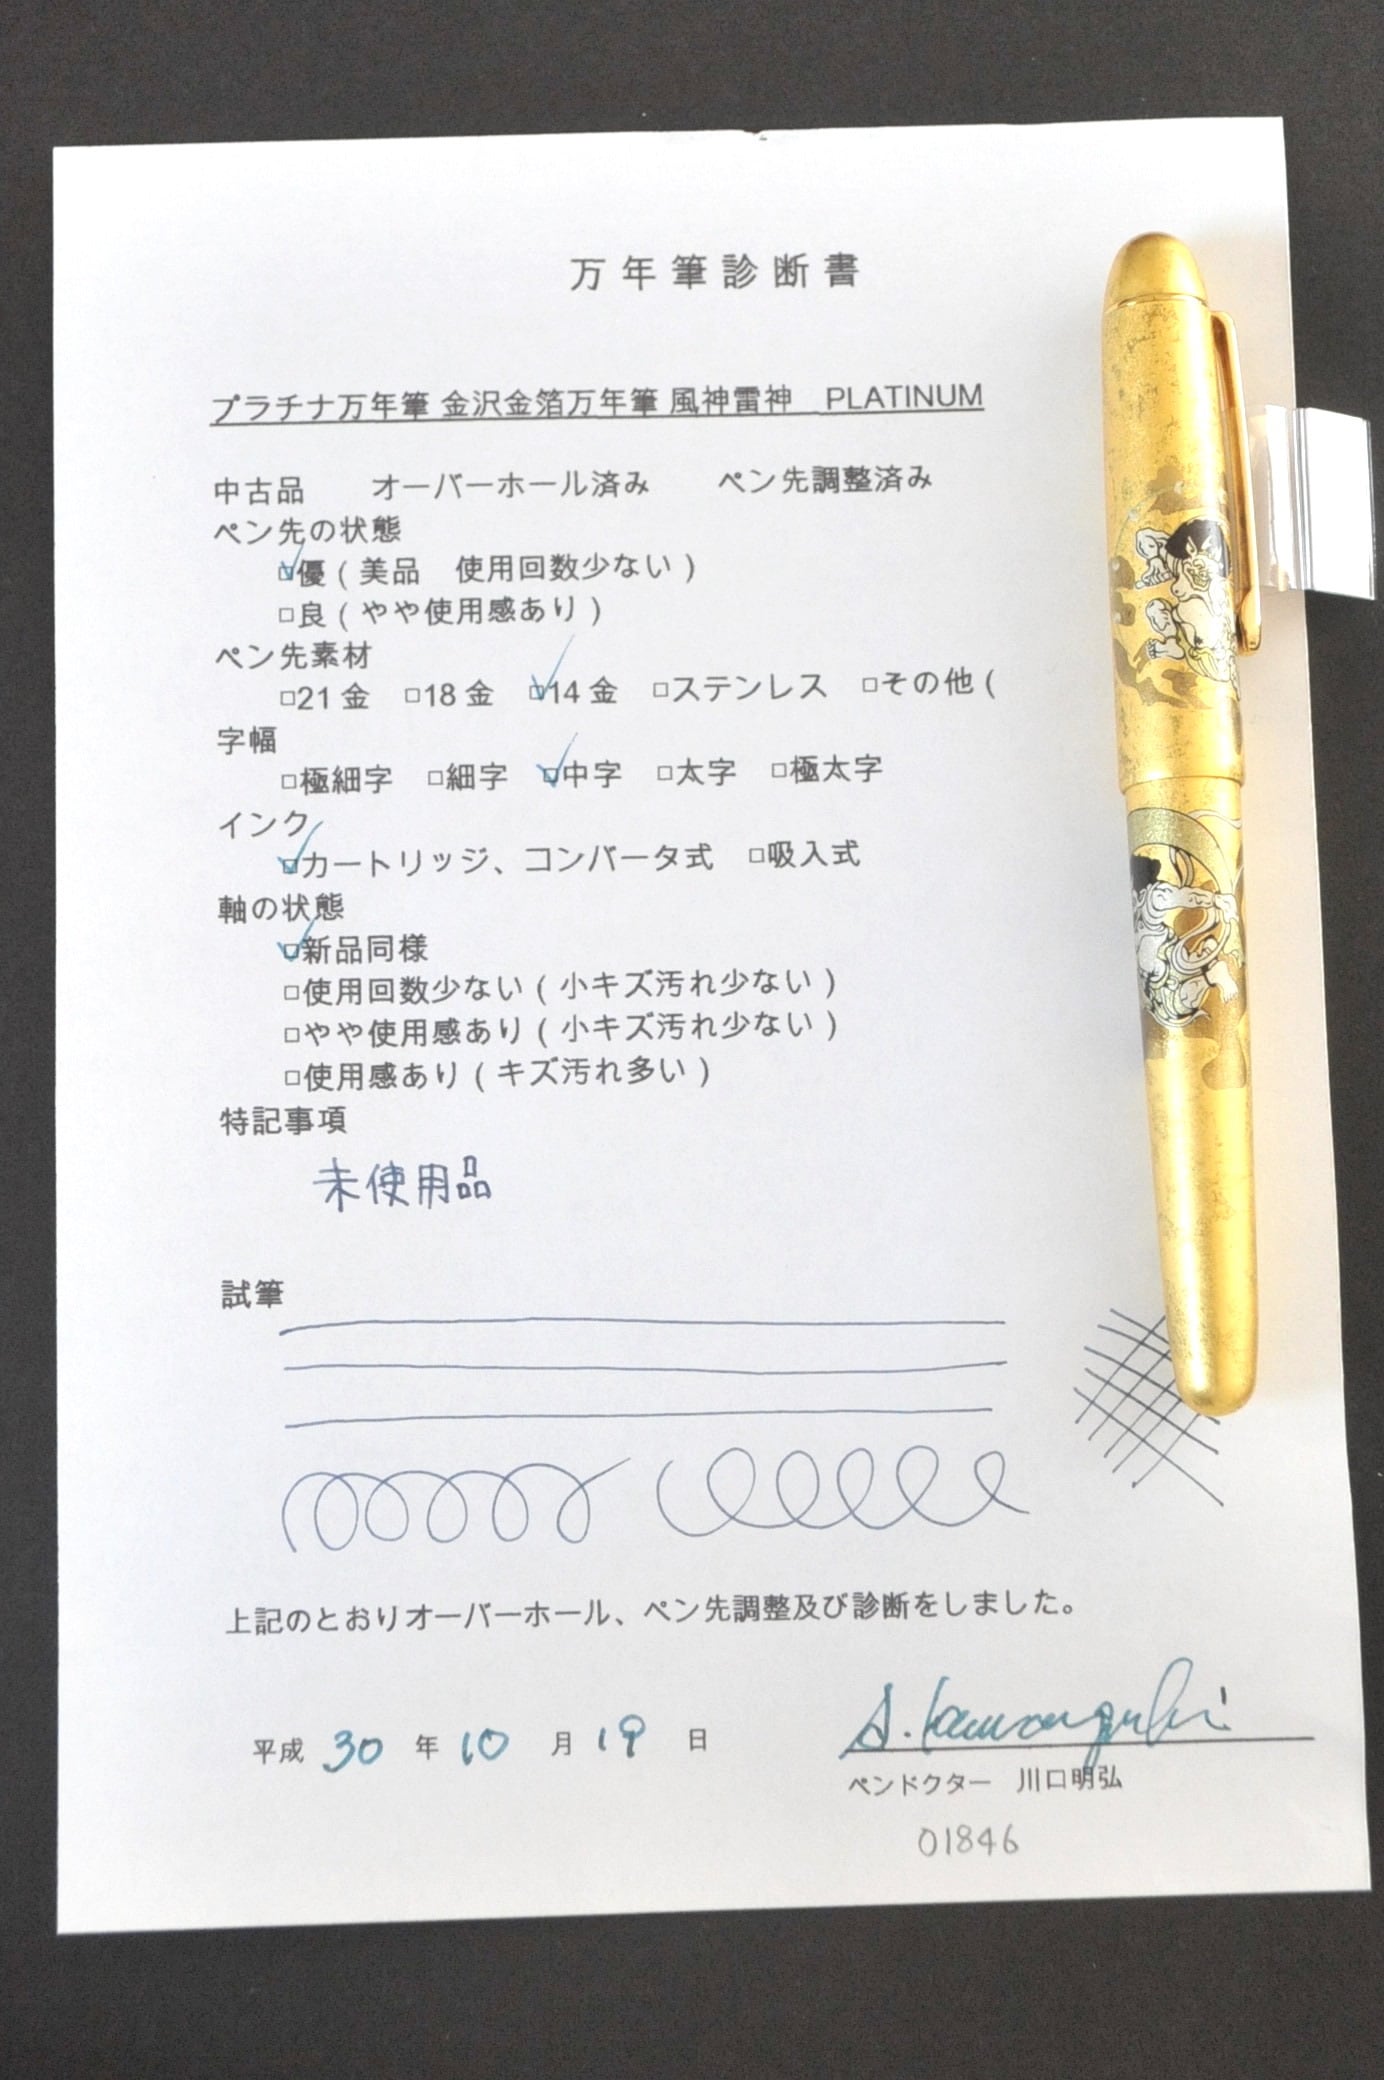 万年筆診断書
プラチナ万年筆 金沢金箔万年筆 風神雷神　PLATINUM
中古品　オーバーホール済み　ペン先調整済み
ペン先の状態
☑優（美品　使用回数少ない）
□良（やや使用感あり）
ペン先素材
□21金　□18金　☑14金　□ステンレス　□その他（
字幅
□極細字　□細字　☑中字　□太字　□極太字
インク
☑カートリッジ、コンバータ式　□吸入式
軸の状態
☑新品同様
□使用回数少ない（小キズ汚れ少ない）
□やや使用感あり（小キズ汚れ少ない）
□使用感あり（キズ汚れ多い）
特記事項
未使用品
試筆
上記のとおりオーバーホール、ペン先調整及び診断をしました。
平成 30 年 10 月 19 日
A. Kawaguchi
ペンドクター　川口明弘
01846